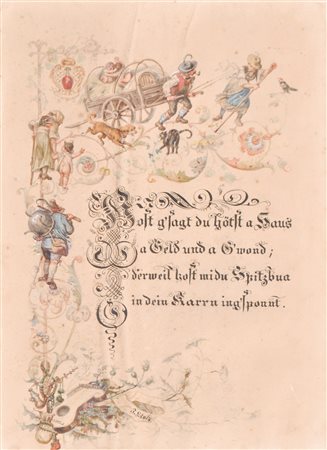 Host g'sagt du hötst a Haus
a Geld und a G'wond;
derweil host mi du Spitzbua
in dein Karrn ing'sponnt.